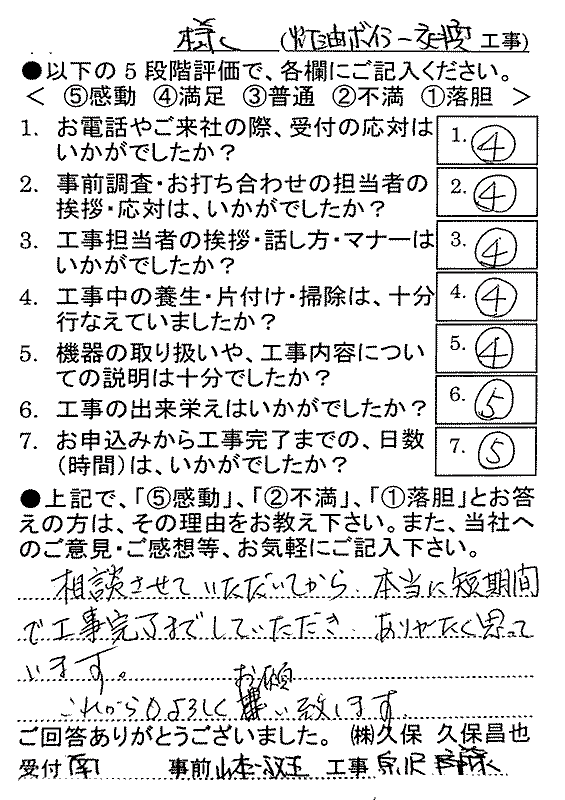 様 (灯油ボイラー交換 工事)
●以下の5段階評価で、各欄にご記入ください。
< ⑤感動 ④満足 ③普通 ②不満 ①落胆 >
1. お電話やご来社の際、受付の応対は
いかがでしたか?
1. ④
2. 事前調査・お打ち合わせの担当者の
挨拶・応対は、いかがでしたか?
2. ④
3. 工事担当者の挨拶・話し方・マナーは
いかがでしたか?
3. ④
4. 工事中の養生・片付け・掃除は、十分
行なえていましたか?
4. ④
5. 機器の取り扱いや、工事内容につい
ての説明は十分でしたか?
5. ④
6. 工事の出来栄えはいかがでしたか?
6. ⑤
7. お申込みから工事完了までの、日数
(時間)は、いかがでしたか?
7. ⑤
●上記で、「⑤感動」、「②不満」、「①落胆」とお答
えの方は、その理由をお教え下さい。また、当社へ
のご意見・ご感想等、お気軽にご記入下さい。
相談させていただいてから、本当に短期間
で工事完了までしていただき、ありがたく思って
います。
これからもよろしくお願い致します。
ご回答ありがとうございました。 ㈱久保 久保昌也
受付 南 事前 山本 工事